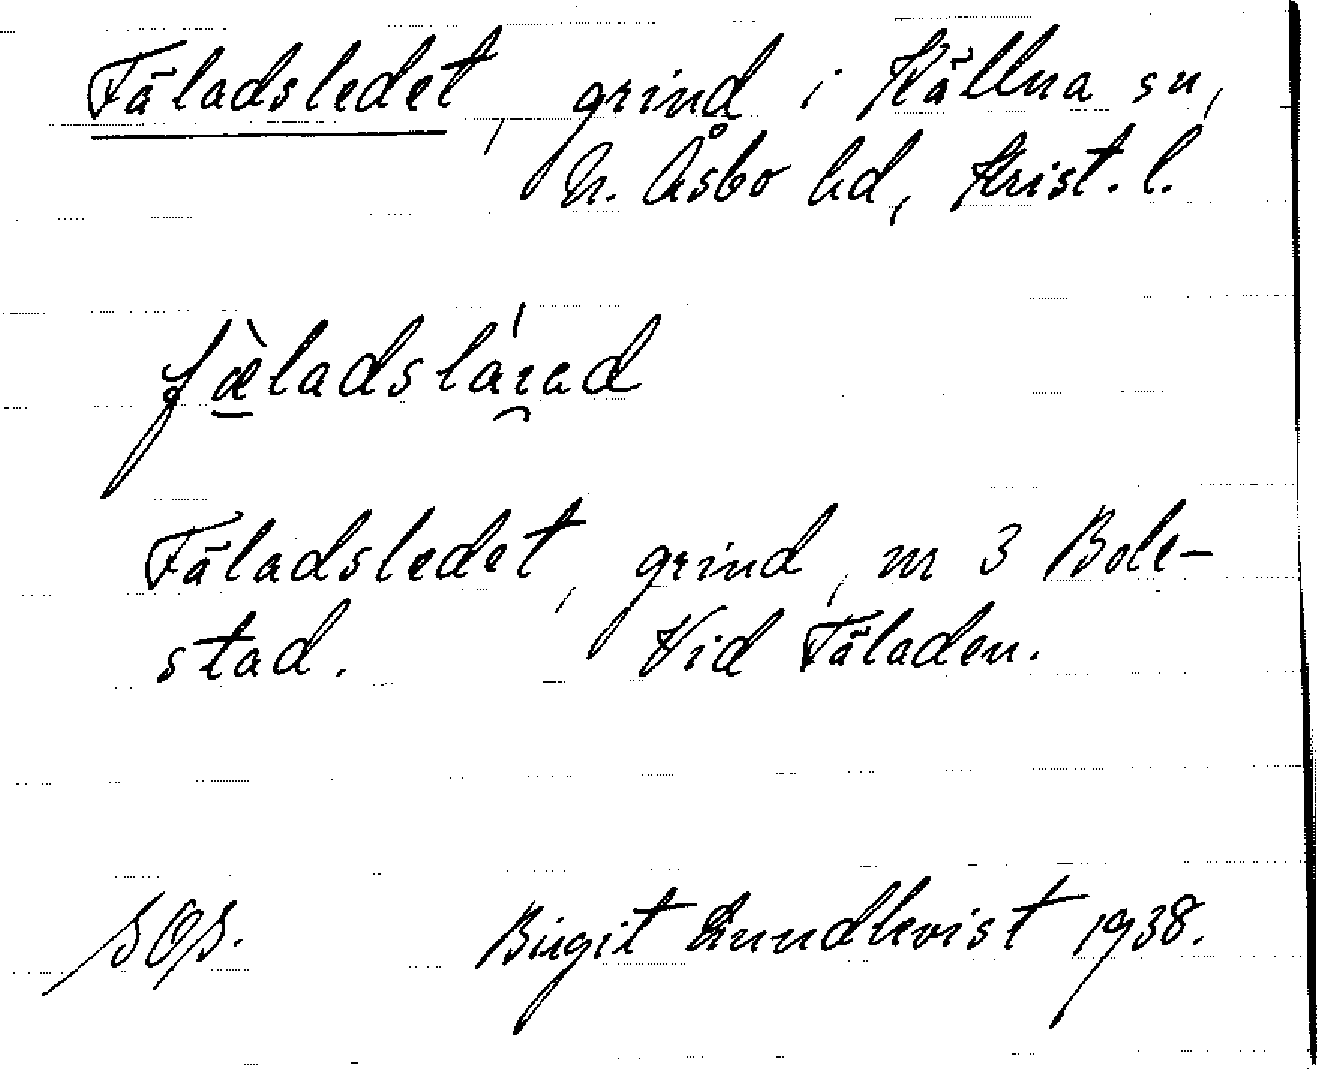 Fäladsledet, grind i Källna sn,
N. Åsbo hd, Krist. l.
fæ̀ladslá̯ıad
Fäladsledet, grind, nr 3 Bole-
stad. Vid Fäladen.
SOS. Birgit Lundkvist 1938.